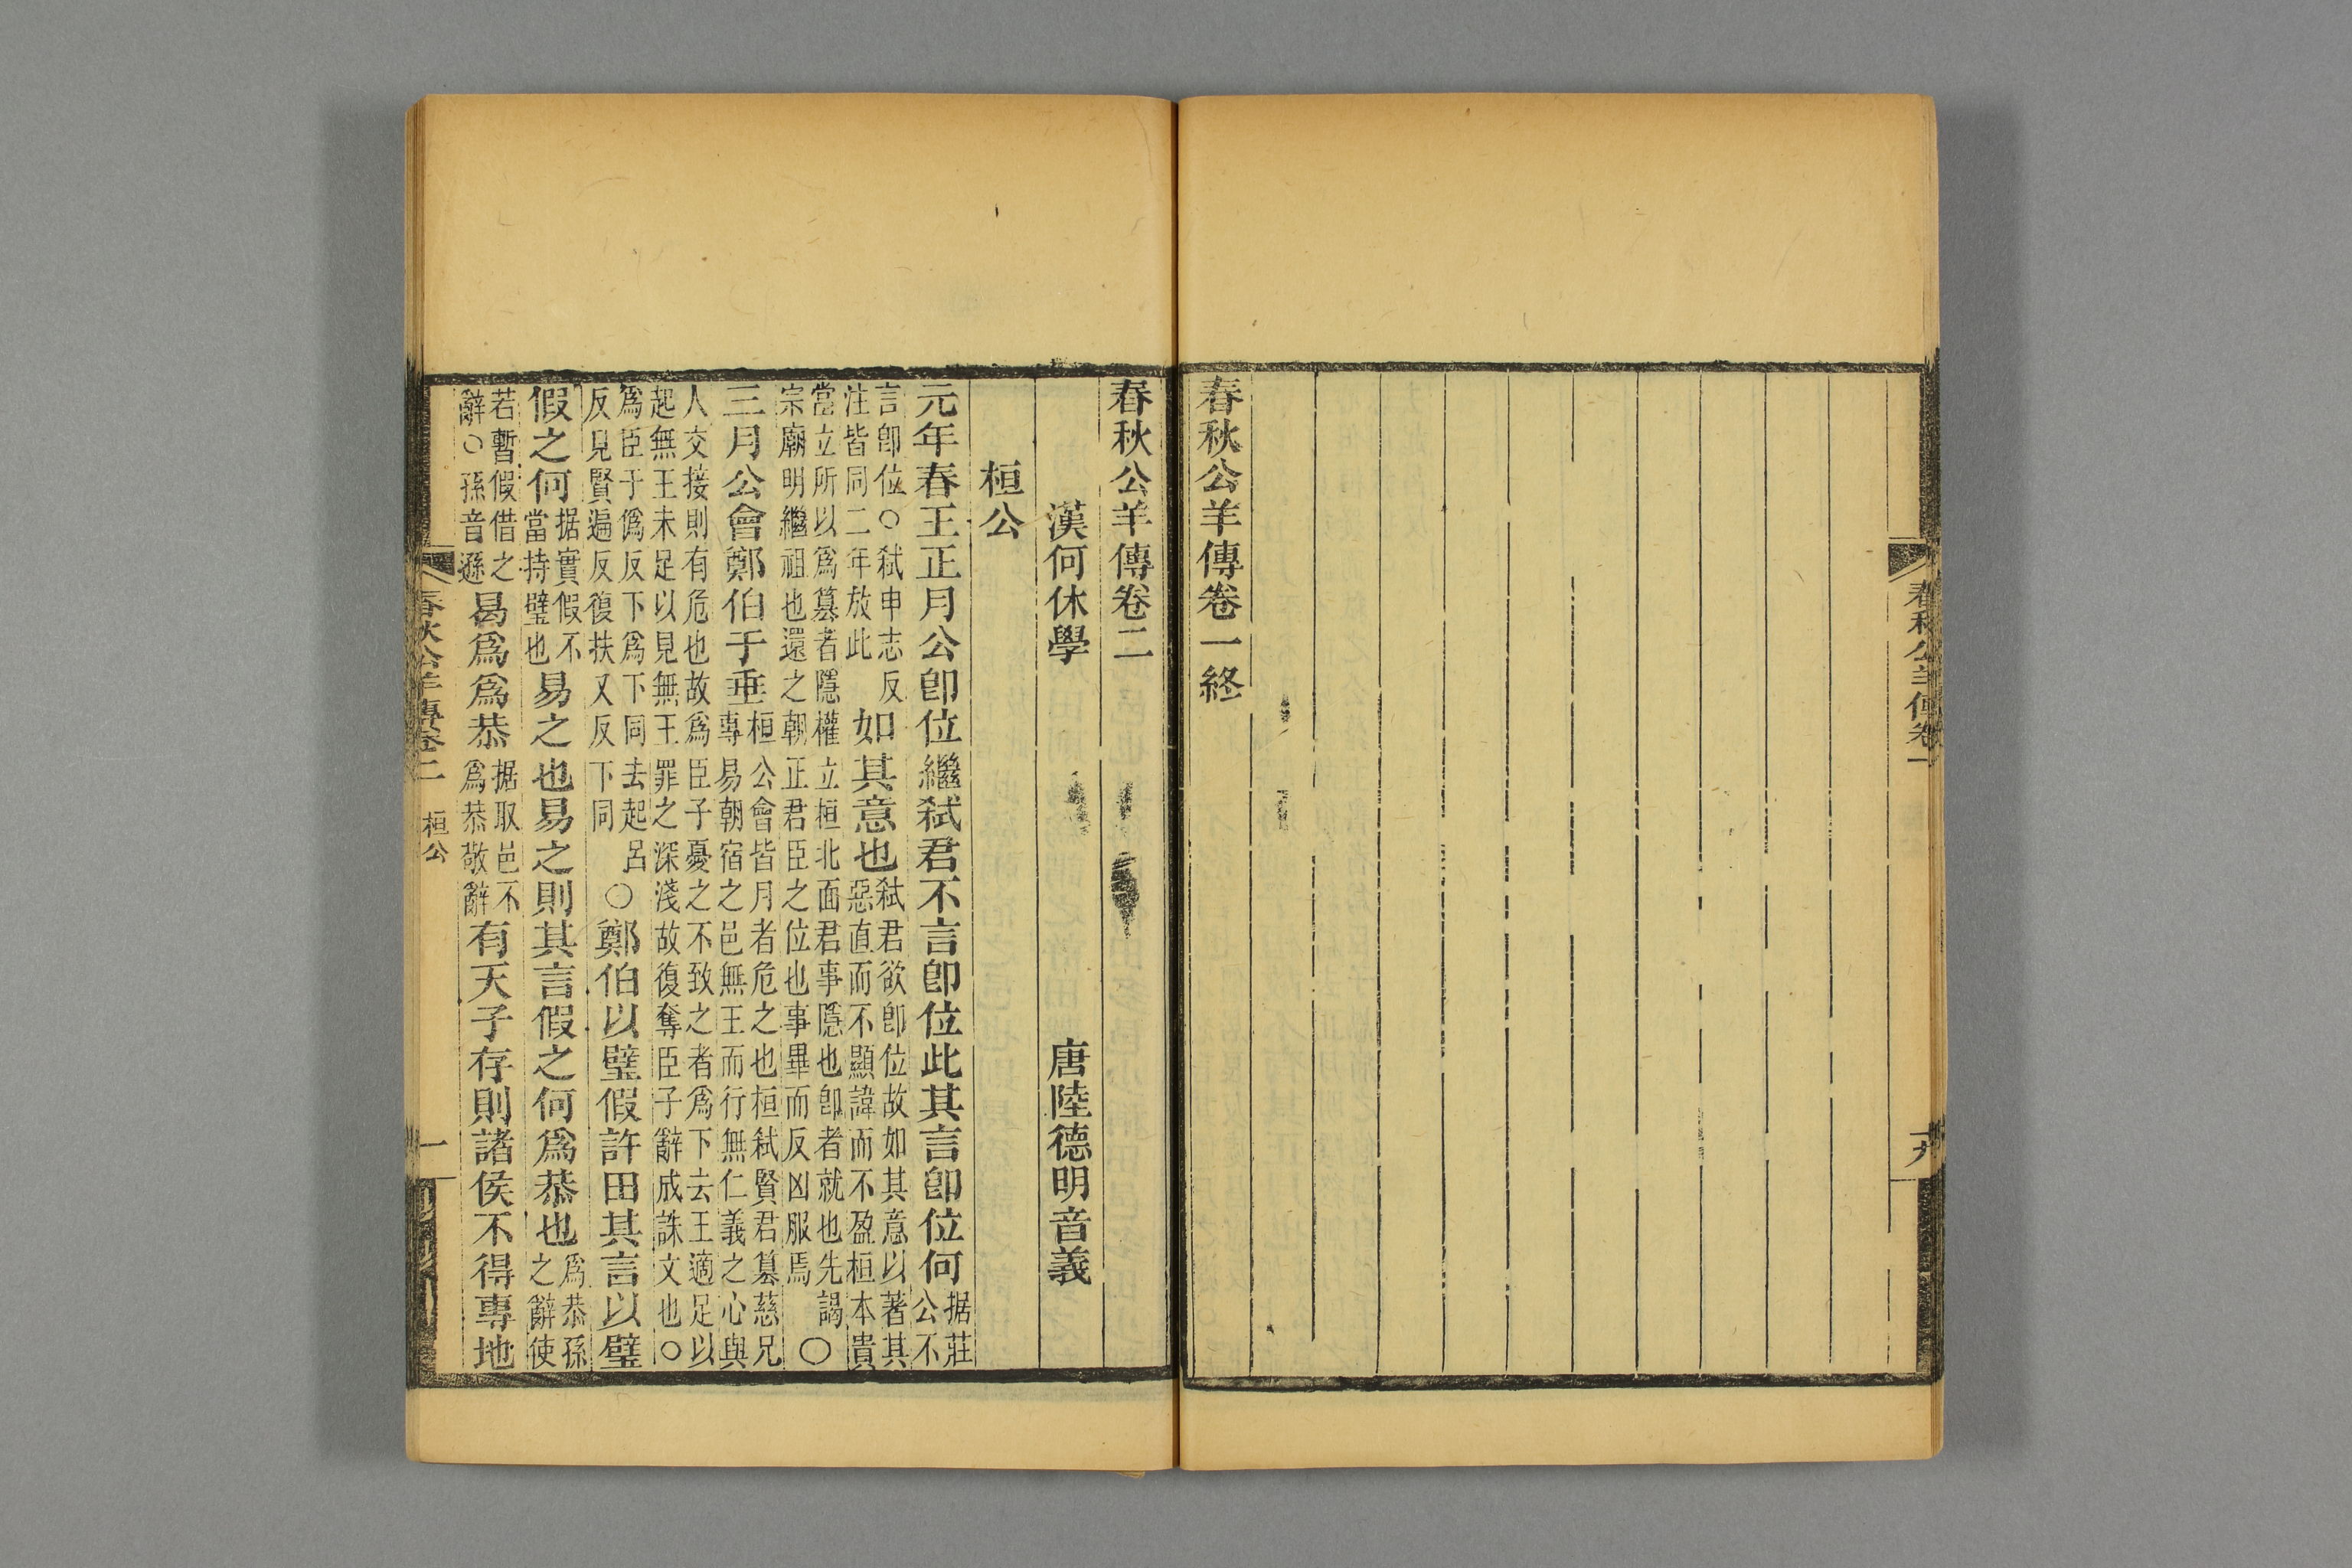 春秋公羊傳卷一
九
春秋公羊傳卷一終
春秋公羊傳卷二
漢何休學　唐陸德明音義
桓公
元年春王正月公卽位繼弒君不言卽位此其言卽位何
据莊
公不
言卽位○弒申志反
注皆同二年放此
如其意也
弒君欲卽位故如其意以著其
惡直而不顯諱而不盈桓本貴
當立所以爲篡者隱權立桓北面君事隱也卽者就也先謁
宗廟明繼祖也還之朝正君臣之位也事畢而反凶服焉
○
三月公會鄭伯于垂
桓公會皆月者危之也桓弒賢君篡慈兄
專易朝宿之邑無王而行無仁義之心與
人交接則有危也故爲臣子憂之不致之者爲下去王適足以
起無王未足以見無王罪之深淺故復奪臣子辭成誅文也○
爲臣于僞反下爲下同去起呂
反見賢遍反復扶又反下同
○鄭伯以璧假許田其言以璧
假之何
据實假不
當持璧也
易之也易之則其言假之何爲恭也
爲恭孫
之辭使
若暫假借之
辭○孫音遜
曷爲爲恭
据取邑不
爲恭敬辭
有天子存則諸侯不得專地
春秋公羊傳卷二　桓公　一